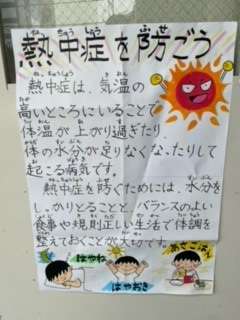 熱中症を防ごう
熱中症は、気温の
高いところにいることで
体温が上がり過ぎたり、
体の水分が足りなくなったりして
起こる病気です。
熱中症を防ぐためには、水分を
しっかりとることと バランスのよい
食事や規則正しい生活で体調を
整えておくことが大切です。
はやね
はやおき
あさごはん